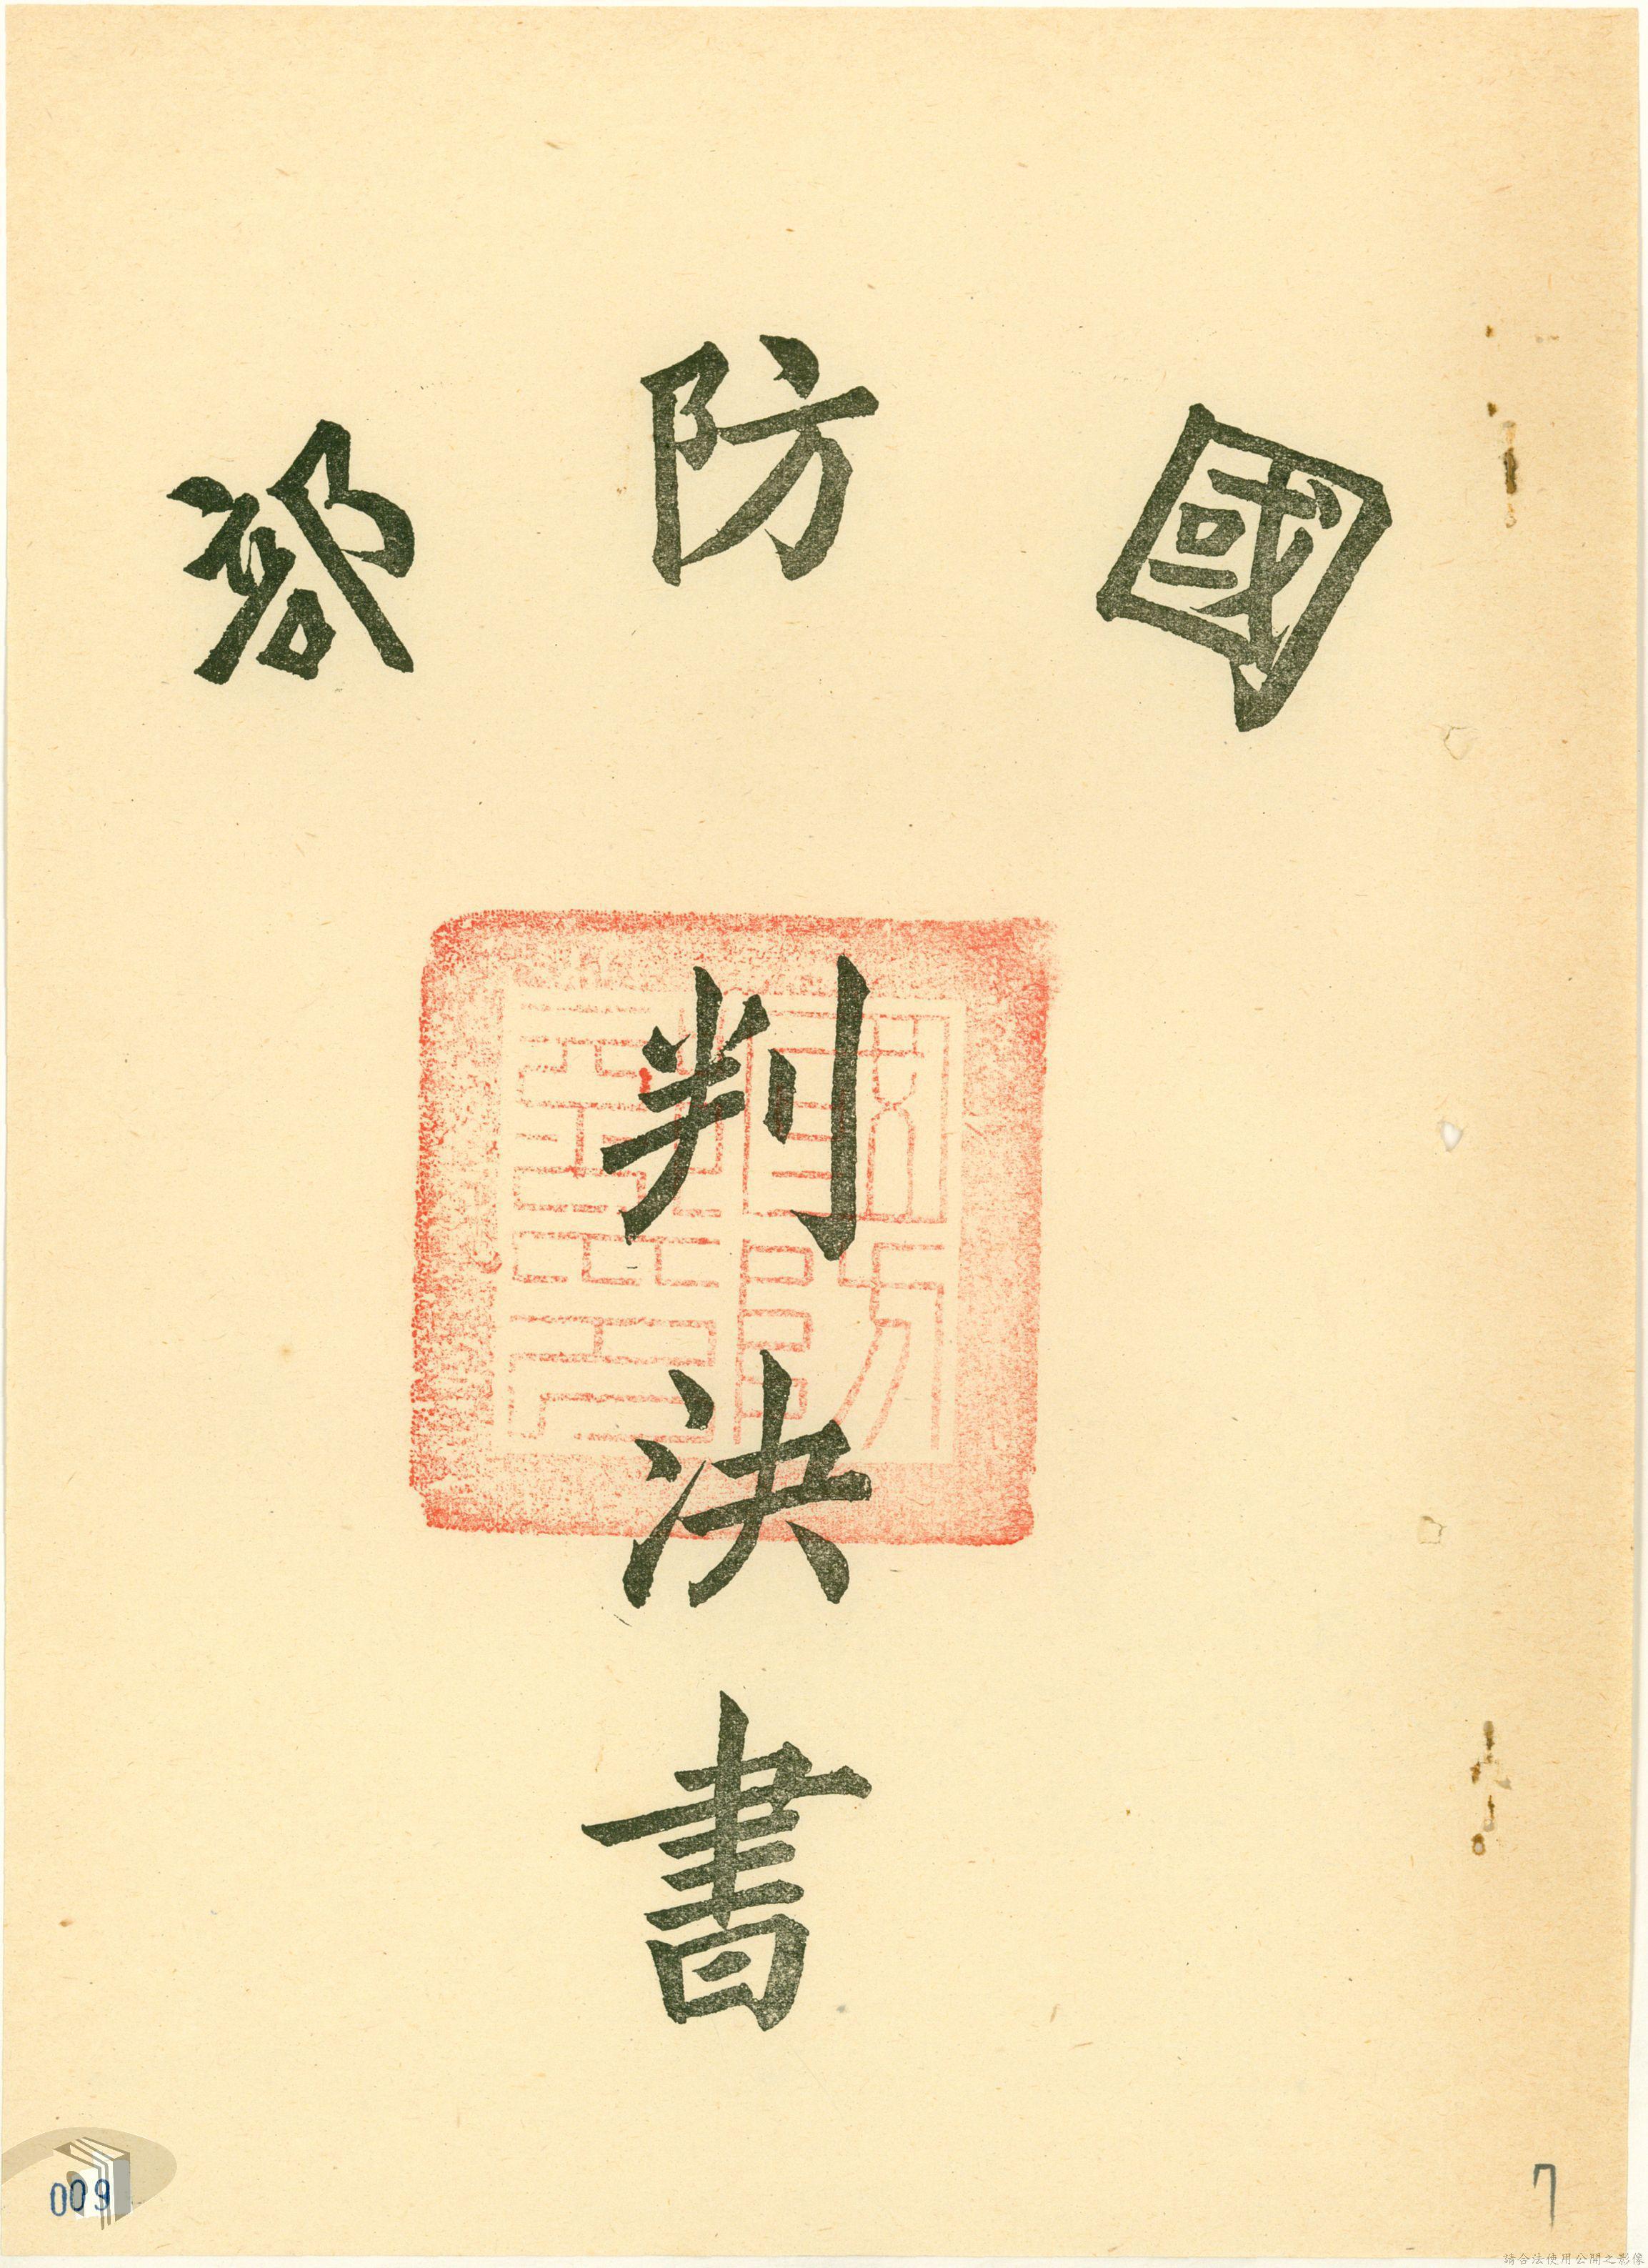 國防部
判決書
009
7
請合法使用公開之影像